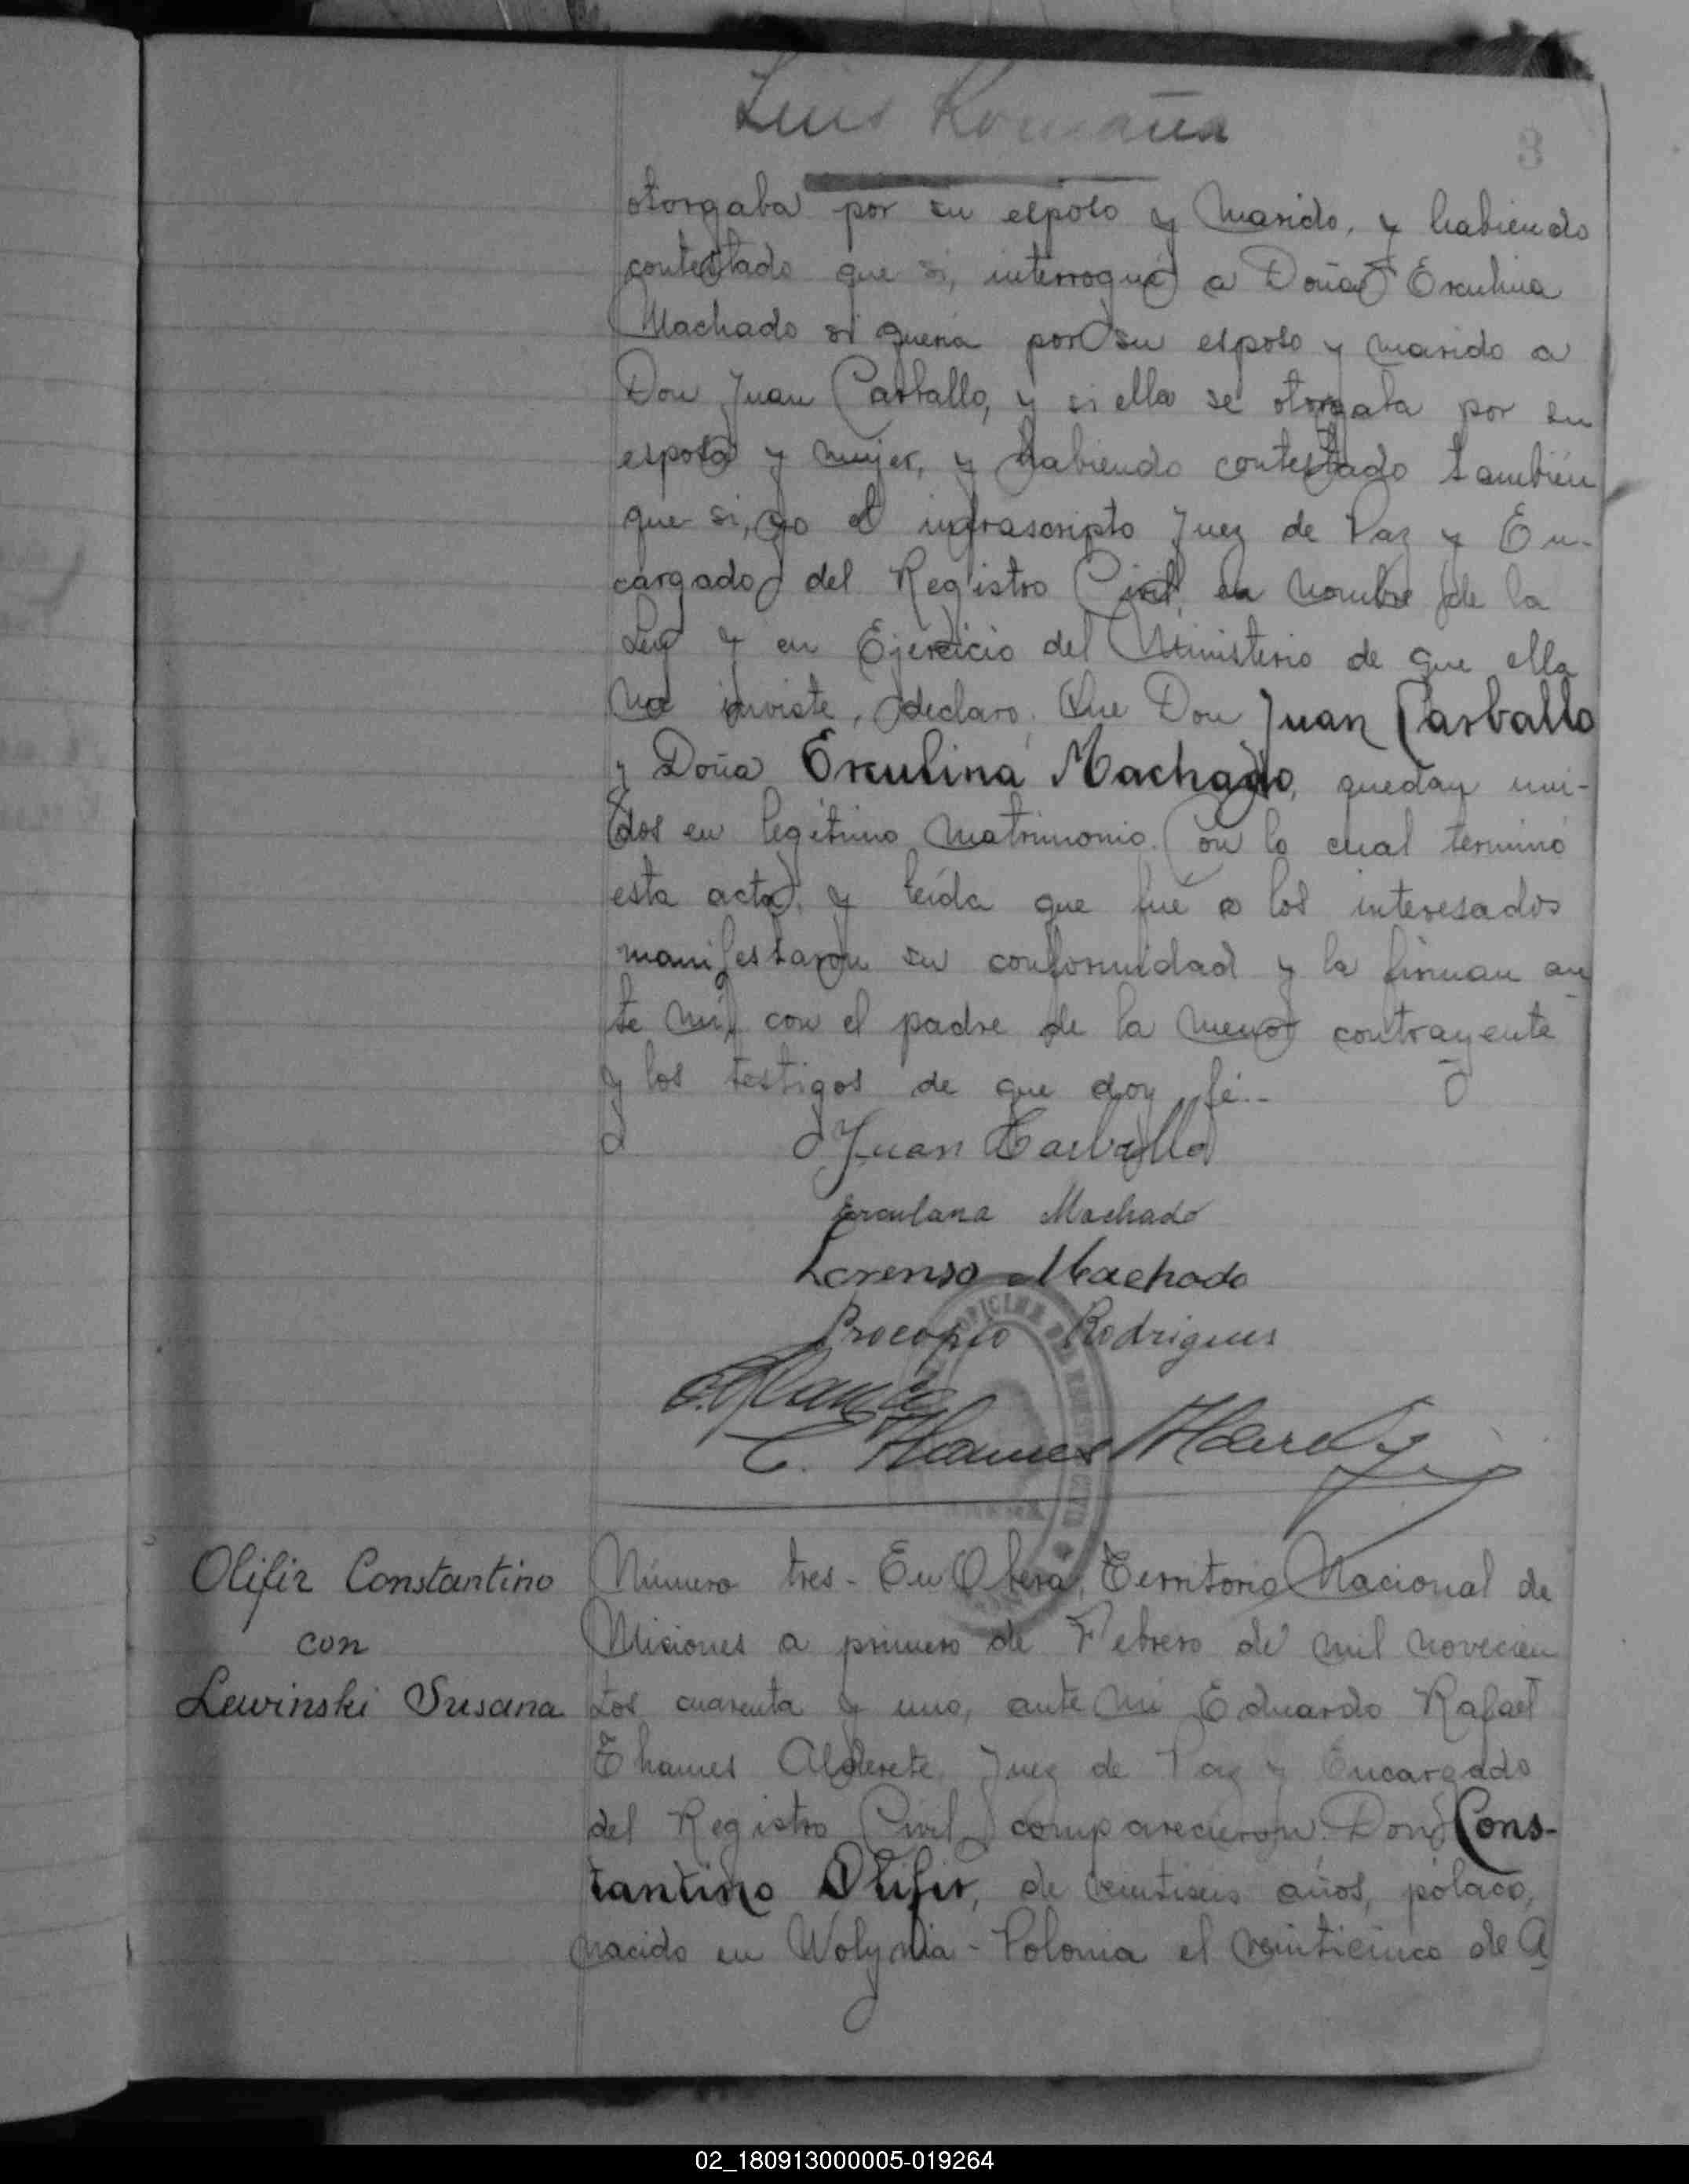 Luis Romaña
3
otorgaba por su esposo y marido, y habiendo
contestado que si, interrogué a Doña Erculina
Machado si queria por su esposo y marido a
Don Juan Carballo, y si ella se otorgaba por su
esposa y mujer, y habiendo contestado también
que si, yo el infrascripto Juez de Paz y En-
cargado del Registro Civil, en nombre de la
Ley y en Ejercicio del Ministerio de que ella
me inviste, declaro: Que Don Juan Carballo
y Doña Erculina Machado, quedan uni-
dos en legítimo matrimonio. Con lo cual terminó
esta acta, y leída que fué a los interesados
manifestaron su conformidad y la firman an
te mi, con el padre de la menor contrayente
y los testigos de que doy fé.-
Juan Carballo
Erculana Machado
Lorenso Machado
Procopio Rodrigues
Olifir Constantino
con
Lewinski Susana
Número tres - En Obera, Territorio Nacional de
Misiones a primero de Febrero de mil novecien
tos cuarenta y uno, ante mi Eduardo Rafael
Thames Alderete Juez de Paz y Encargado
del Registro Civil comparecieron: Don Cons-
tantino Olifir, de veintiseis años, polaco,
nacido en Wolynia - Polonia el veinticinco de A
02_180913000005-019264